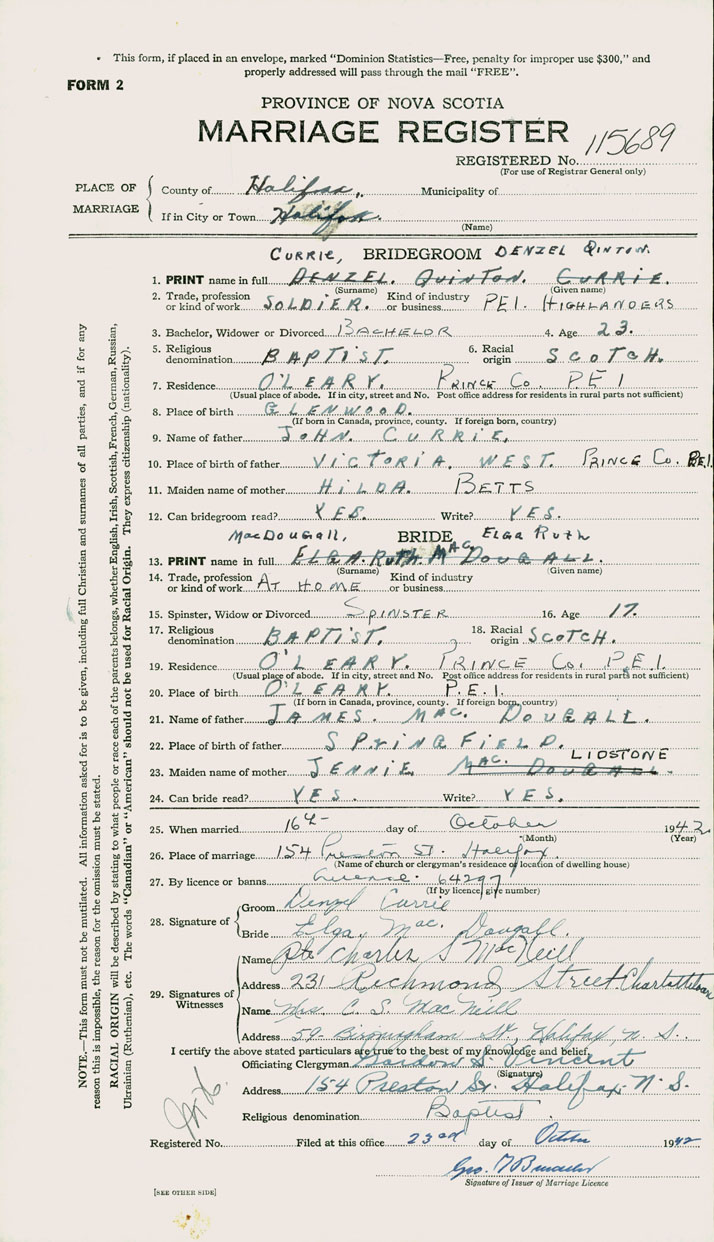 • This form, if placed in an envelope, marked "Dominion Statistics—Free, penalty for improper use $300," and
properly addressed will pass through the mail "FREE".
FORM 2
PROVINCE OF NOVA SCOTIA
MARRIAGE REGISTER
115689
REGISTERED No.
(For use of Registrar General only)
PLACE OF MARRIAGE
County of Halifax, Municipality of
If in City or Town Halifax.
(Name)
CURRIE, BRIDEGROOM DENZEL QINTON.
1. PRINT name in full DENZEL. QUINTON. CURRIE.
(Surname) (Given name)
2. Trade, profession or kind of work SOLDIER. Kind of industry or business PEI. HIGHLANDERS
3. Bachelor, Widower or Divorced BACHELOR 4. Age 23.
5. Religious denomination BAPTIST. 6. Racial origin SCOTCH.
7. Residence O'LEARY. PRINCE CO. P.E.I
(Usual place of abode. If in city, street and No. Post office address for residents in rural parts not sufficient)
8. Place of birth GLENWOOD.
(If born in Canada, province, county. If foreign born, country)
9. Name of father JOHN. CURRIE.
10. Place of birth of father VICTORIA. WEST. PRINCE CO. P.E.I.
11. Maiden name of mother HILDA. BETTS
12. Can bridegroom read? YES. Write? YES.
MacDOUGALL, BRIDE ELGA RUTH
13. PRINT name in full ELGA. RUTH. MAC DOUGALL.
(Surname) (Given name)
14. Trade, profession or kind of work AT HOME Kind of industry or business
15. Spinster, Widow or Divorced SPINSTER 16. Age 17.
17. Religious denomination BAPTIST. 18. Racial origin SCOTCH.
19. Residence O'LEARY. PRINCE CO. P.E.I.
(Usual place of abode. If in city, street and No. Post office address for residents in rural parts not sufficient)
20. Place of birth O'LEARY. P.E.I.
(If born in Canada, province, county. If foreign born, country)
21. Name of father JAMES. MAC. DOUGALL.
22. Place of birth of father SPRINGFIELD.
LIDSTONE
23. Maiden name of mother JENNIE. MAC. DOUGALL.
24. Can bride read? YES. Write? YES.
25. When married 16th day of October 1942
(Month) (Year)
26. Place of marriage 154 Preston St. Halifax.
(Name of church or clergyman's residence or location of dwelling house)
27. By licence or banns License 64297
(If by licence, give number)
28. Signature of
Groom Denzel Currie
Bride Elga Mac. Dougall.
29. Signatures of Witnesses
Name Pte Charles S MacNeill
Address 231 Richmond Street Charlottetown
Name Mrs. C. S. MacNeill
Address 59 Birmingham St, Halifax, N. S.
I certify the above stated particulars are true to the best of my knowledge and belief.
Officiating Clergyman Gordon S. Vincent
(Signature)
Address 154 Preston St. Halifax, N. S.
Religious denomination Baptist.
Registered No. Filed at this office 23rd day of October 1942
Geo.
Signature of Issuer of Marriage Licence
[SEE OTHER SIDE]
NOTE.—This form must not be mutilated. All information asked for is to be given, including full Christian and surnames of all parties, and if for any
reason this is impossible, the reason for the omission must be stated.
RACIAL ORIGIN will be described by stating to what people or race each of the parents belongs, whether English, Irish, Scottish, French, German, Russian,
Ukrainian (Ruthenian), etc. The words "Canadian" or "American" should not be used for Racial Origin. They express citizenship (nationality).